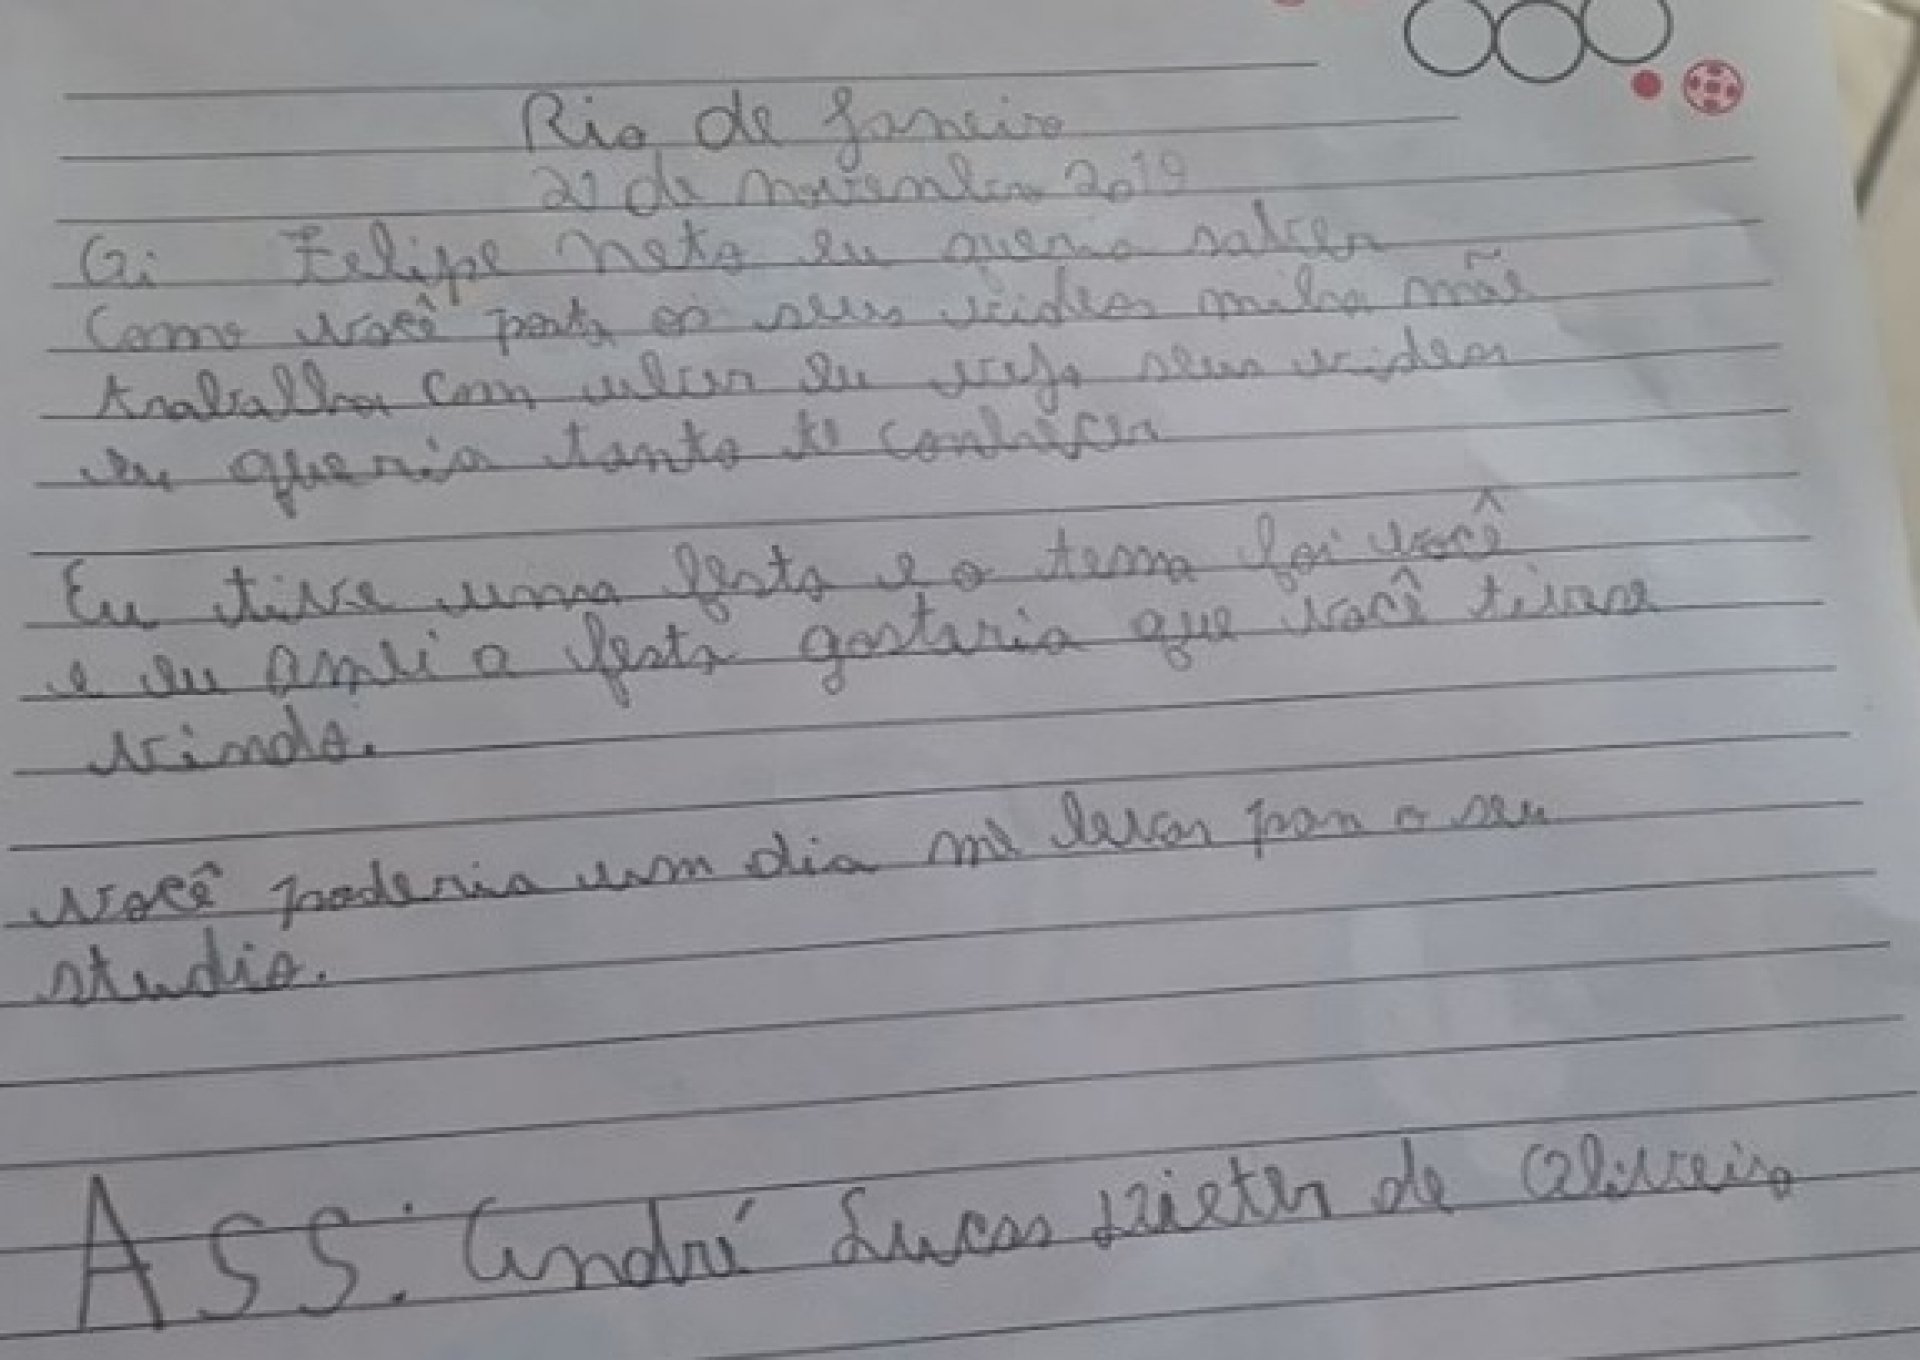 Rio de Janeiro
21 de novembro 2019
Oi Felipe Neto eu queria saber
Como você posta os seus videos minha mãe
trabalha com uber eu vejo seus videos
eu queria tanto te conhecer
Eu tive uma festa e o tema foi você
e eu amei a festa gostaria que você tivese
vindo.
você poderia um dia me levar para o seu
studio.
ASS: André Lucas de Oliveira